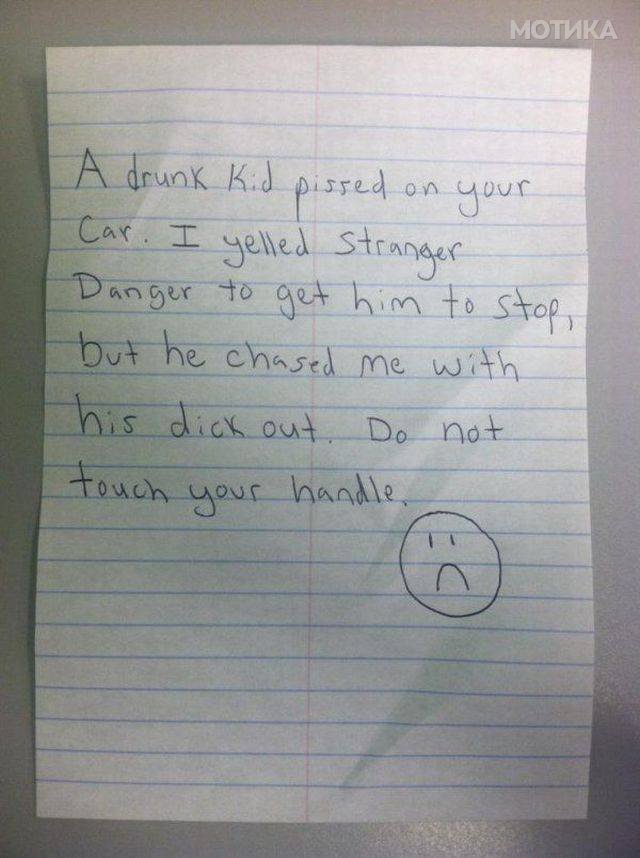 МОТИКА
A drunk Kid pissed on your
Car. I yelled Stranger
Danger to get him to stop,
but he chased me with
his dick out. Do not
touch your handle.